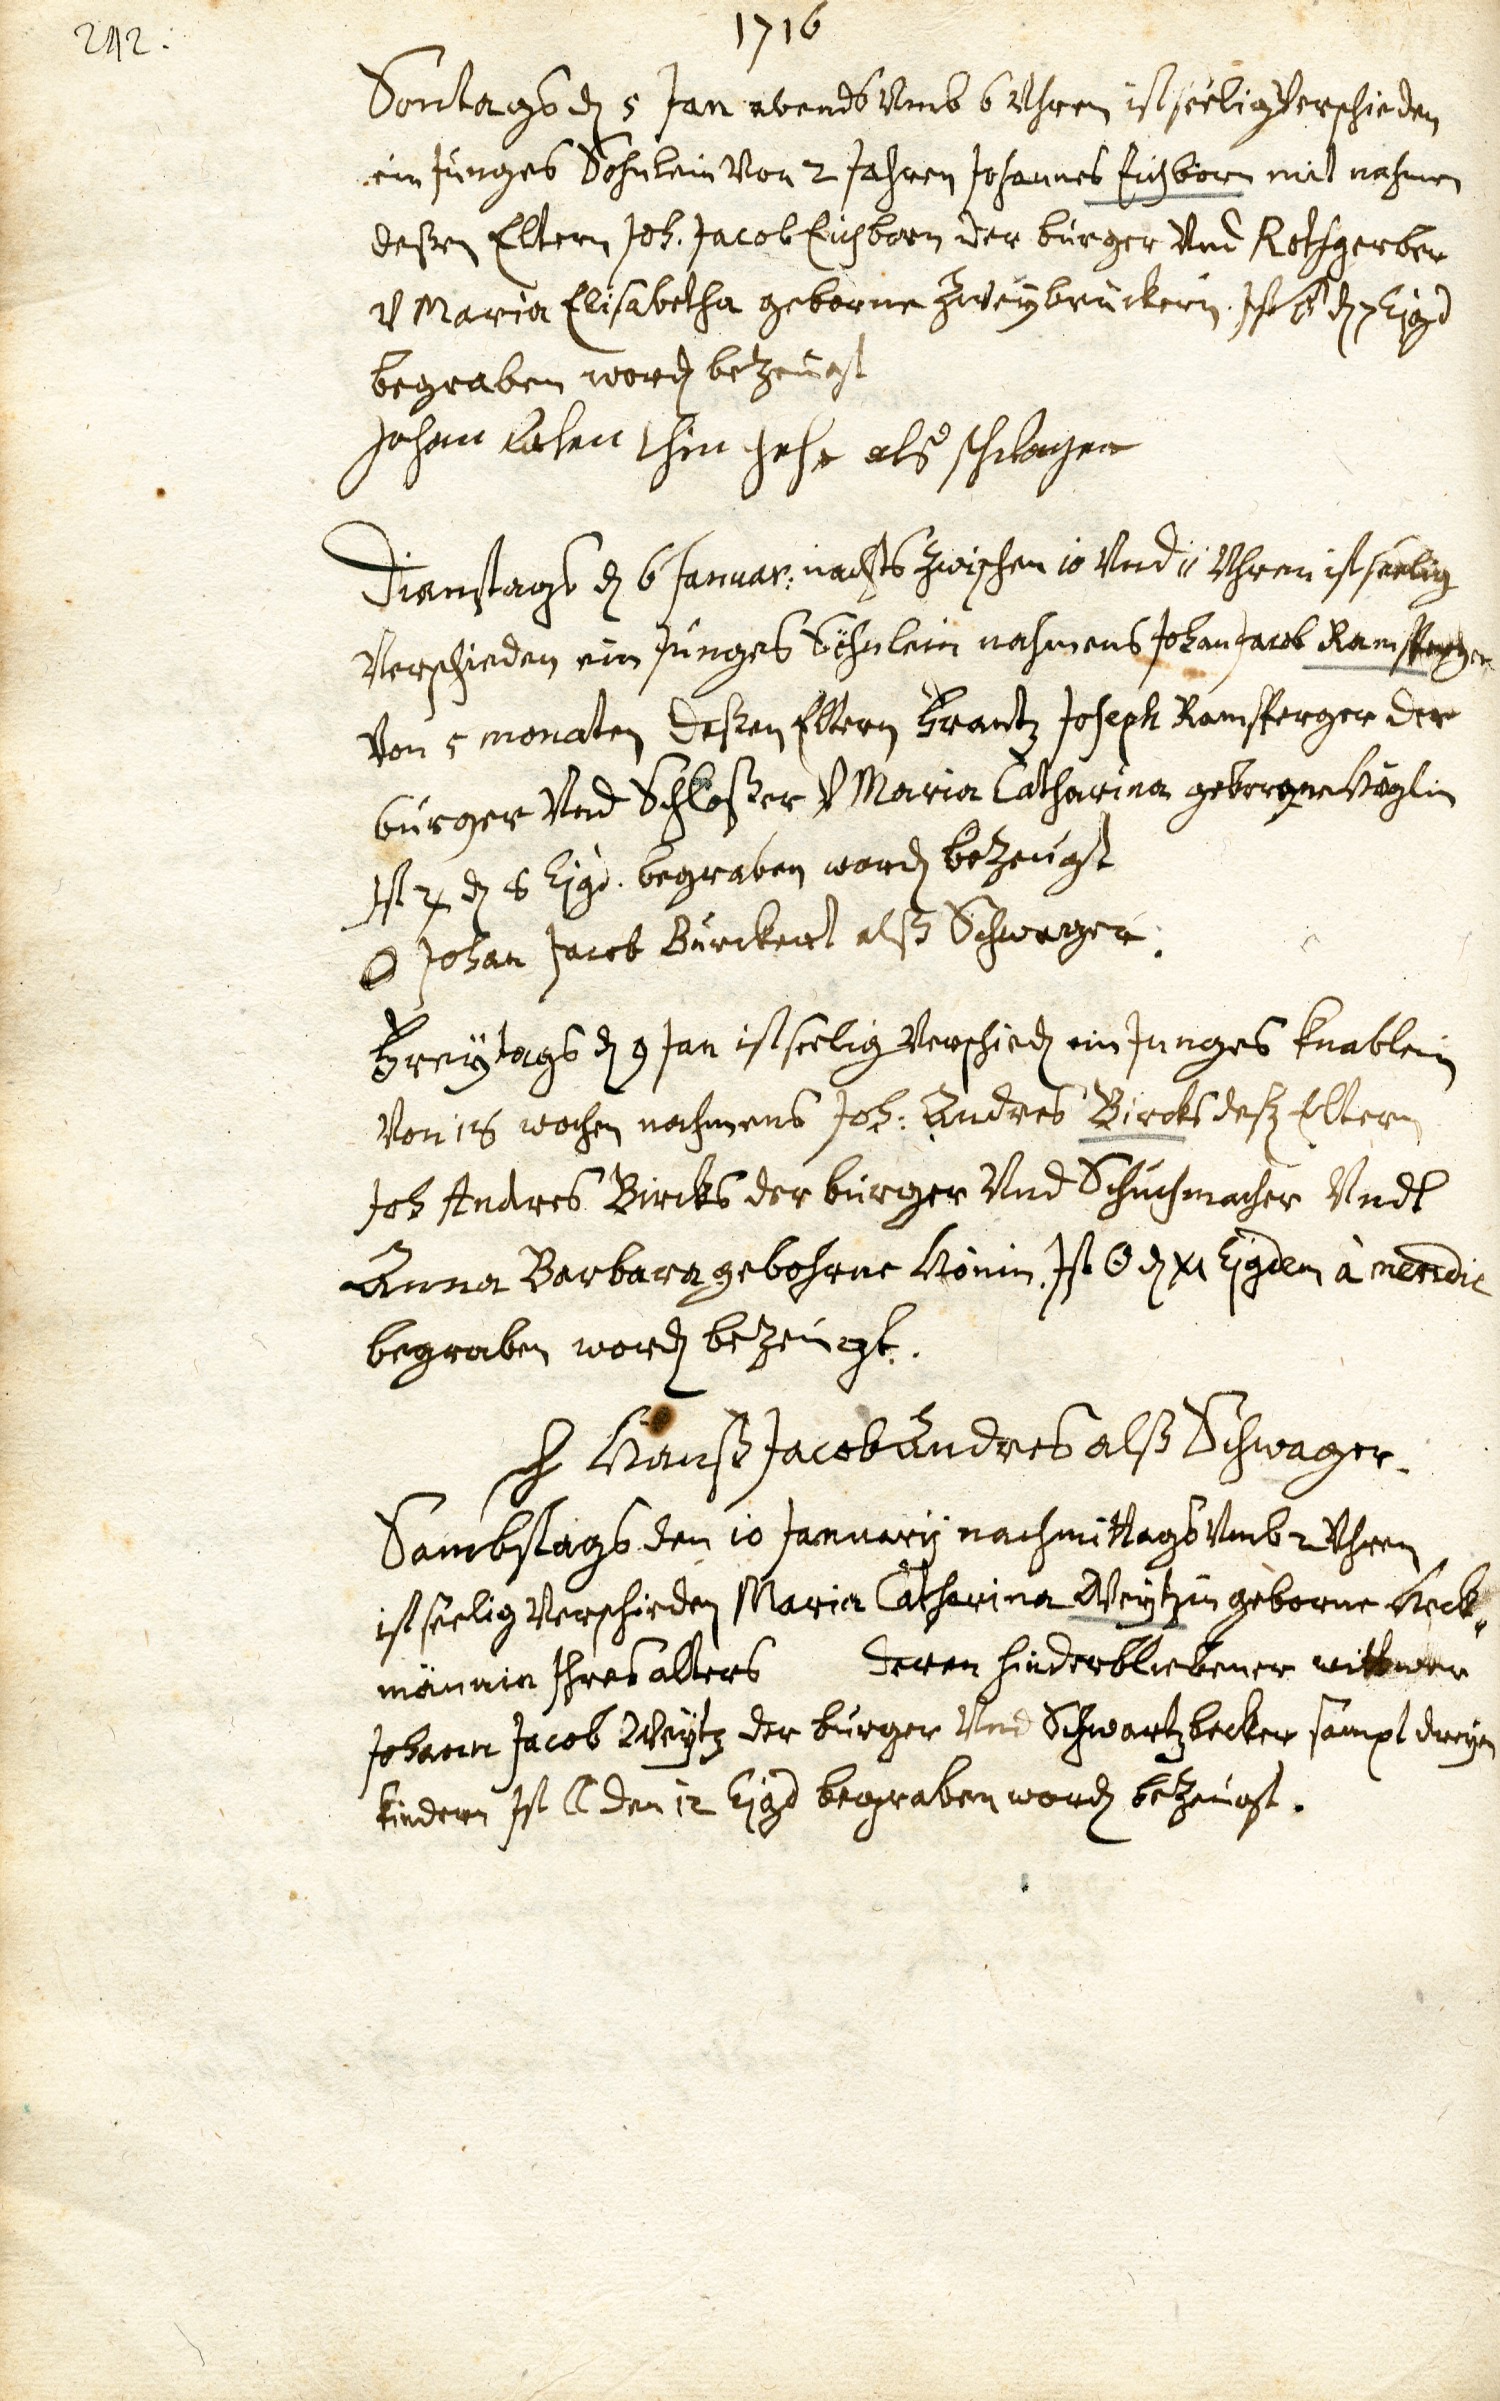 242.
1716
Sontags d 5 Jan abends Vmb 6 Uhren ist seelig Verschieden
ein Junges Söhnlein Von 2 Jahren Johannes Eichborn mit nahmen
deßen Eltern Joh. Jacob Eichborn der burger Vnd Rothgerber
V Maria Elisabetha geborne Zweybrückerin. Ist ♂ d 7 Ejgd
begraben word bezeugt
Johan als schwager
Dienstags d 6 Januar: nachts zwischen 10 Vnd 11 Uhren ist seelig
Verschieden ein Junges Söhnlein nahmens Johan Jacob Ramsperger
Von 5 monaten deßen Eltern Frantz Joseph Ramsperger der
burger Vnd Schloßer V Maria Catharina geborne Vöglin
Ist ♃ d 8 Ejgd. begraben word bezeugt
Johan Jacob Burckert alß Schwager.
Freytags d 9 Jan ist seelig Verschied ein Junges Knablein
Von 18 wochen nahmens Joh: Andres Bircks deß Eltern
Joh Andres Bircks der burger Vnd Schuchmacher Vndt
Anna Barbara gebohrne Hönin. Ist ☉ d XI Ejgdem à meridie
begraben word bezeugt.
H Hanß Jacob Andres alß Schwager.
Sambstags den 10 Januarij nachmittags Vmb 2 Uhren
ist seelig Verschieden Maria Catharina Weytzin geborne Heck-
männin Ihres alters deren hinderbliebener wittwer
Johann Jacob Weytz der burger Vnd Schwartzbecker sampt dreyen
kindern Ist ☾ den 12 Ejgd begraben word bezeugt.